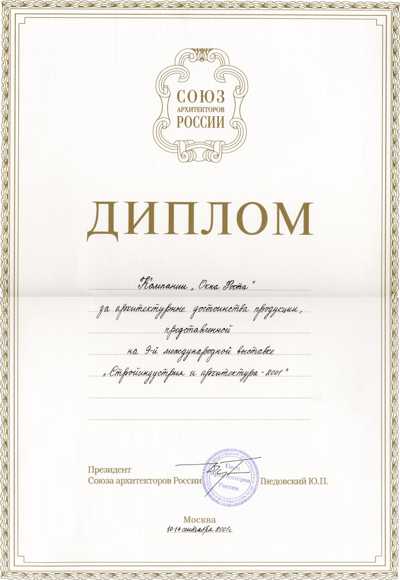 СОЮЗ
АРХИТЕКТОРОВ
РОССИИ
ДИПЛОМ
Компании „Окна Роста"
за архитектурные достоинства продукции,
представленной
на 9-й международной выставке
„Стройиндустрия и архитектура - 2001"
Президент
Союза архитекторов России
Гнедовский Ю.П.
Москва
сентября 2001г.